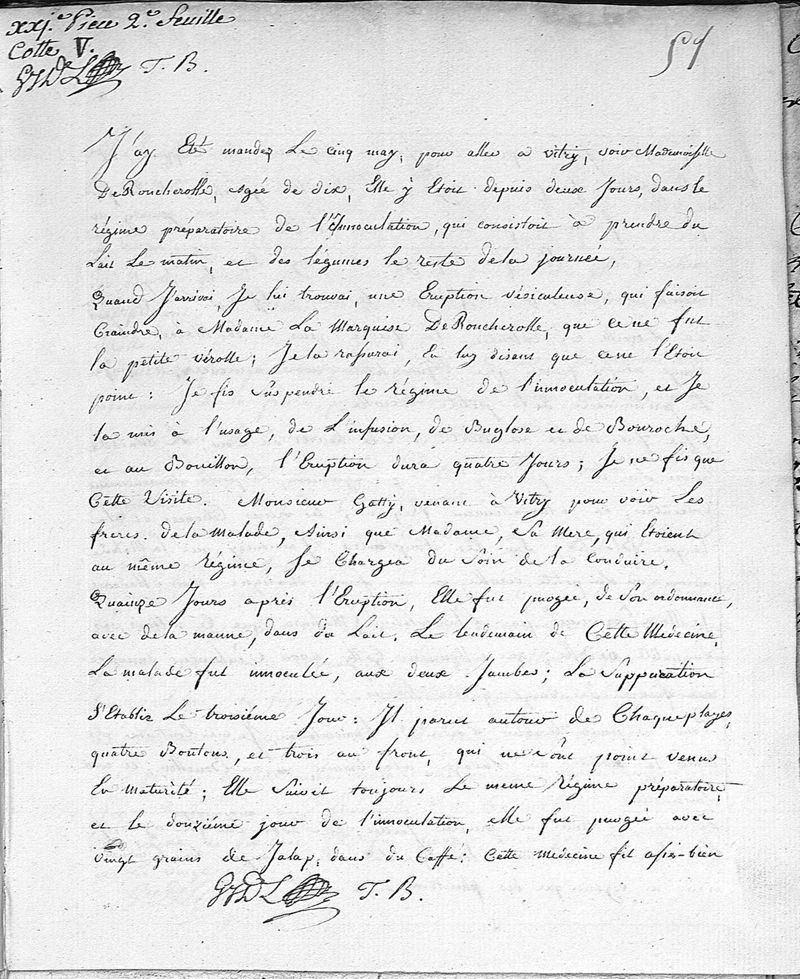 xxje Piece 2e feuille
Cotte V.
GHDL T. B.
57
J'ay Eté mandez Le cinq may, pour aller a Vitry, voir Mademoiselle
DeRoncherolle, agée de dix, Elle y Etoit depuis deux Jours, dans le
régime préparatoire de l'Innoculation, qui consistoit à prendre du
Lait Le matin, et des légumes le reste de la journée,
Quand J'arrivai, Je lui trouvai, une Eruption vésiculeuse, qui faisoit
Craindre, à Madame La Marquise DeRoncherolle, que ce ne fut
la petite vérolle; Je la rassurai, En luy disant que ce ne l'Etoit
point: Je fis suspendre le régime de l'innoculation, et Je
la mis à l'usage, de L'infusion, de Buglose et de Bouroche,
et au Bouillon, l'Eruption dura quatre Jours; Je ne fis que
Cette Visite. Monsieur Gatty, venant à Vitry pour voir Les
freres de la Malade, Ainsi que Madame, Sa Mere, qui Etoient
au même Régime, Se Chargea du Soin de la Conduire.
Quainze Jours après l'Eruption, Elle fut purgée, de Son ordonnance,
avec de la manne, dans du Lait. Le lendemain de Cette Medecine,
La malade fut innoculée, aux deux Jambes; La Suppuration
S'Etablit Le troisiéme Jour: Il parut autour de Chaque playes,
quatre Boutons, et trois au front, qui ne sont point venus
En Maturité; Elle Suivit toujours Le meme Régime préparatoire,
et le douziéme jour de l'innoculation, elle fut purgée avec
vingt grains de Jalap, dans du Caffé: Cette Medecine fit assés-bien
GHDL T. B.